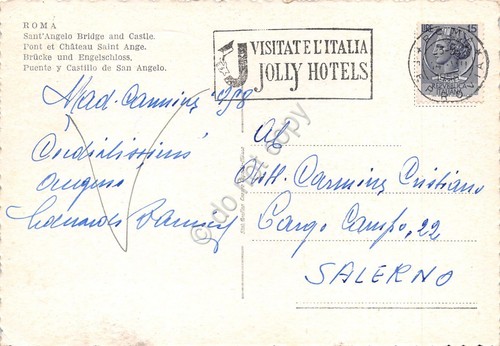 ROMA
Sant'Angelo Bridge and Castle.
Pont et Château Saint Ange.
Brücke und Engelsschloss.
Puente y Castillo de San Angelo.
VISITATE L'ITALIA
JOLLY HOTELS
LIRE 15
ROMA
Cordialissimi
auguri
Al
Dott. Carmine Cristiano
Largo Campo, 22
SALERNO
© do not copy